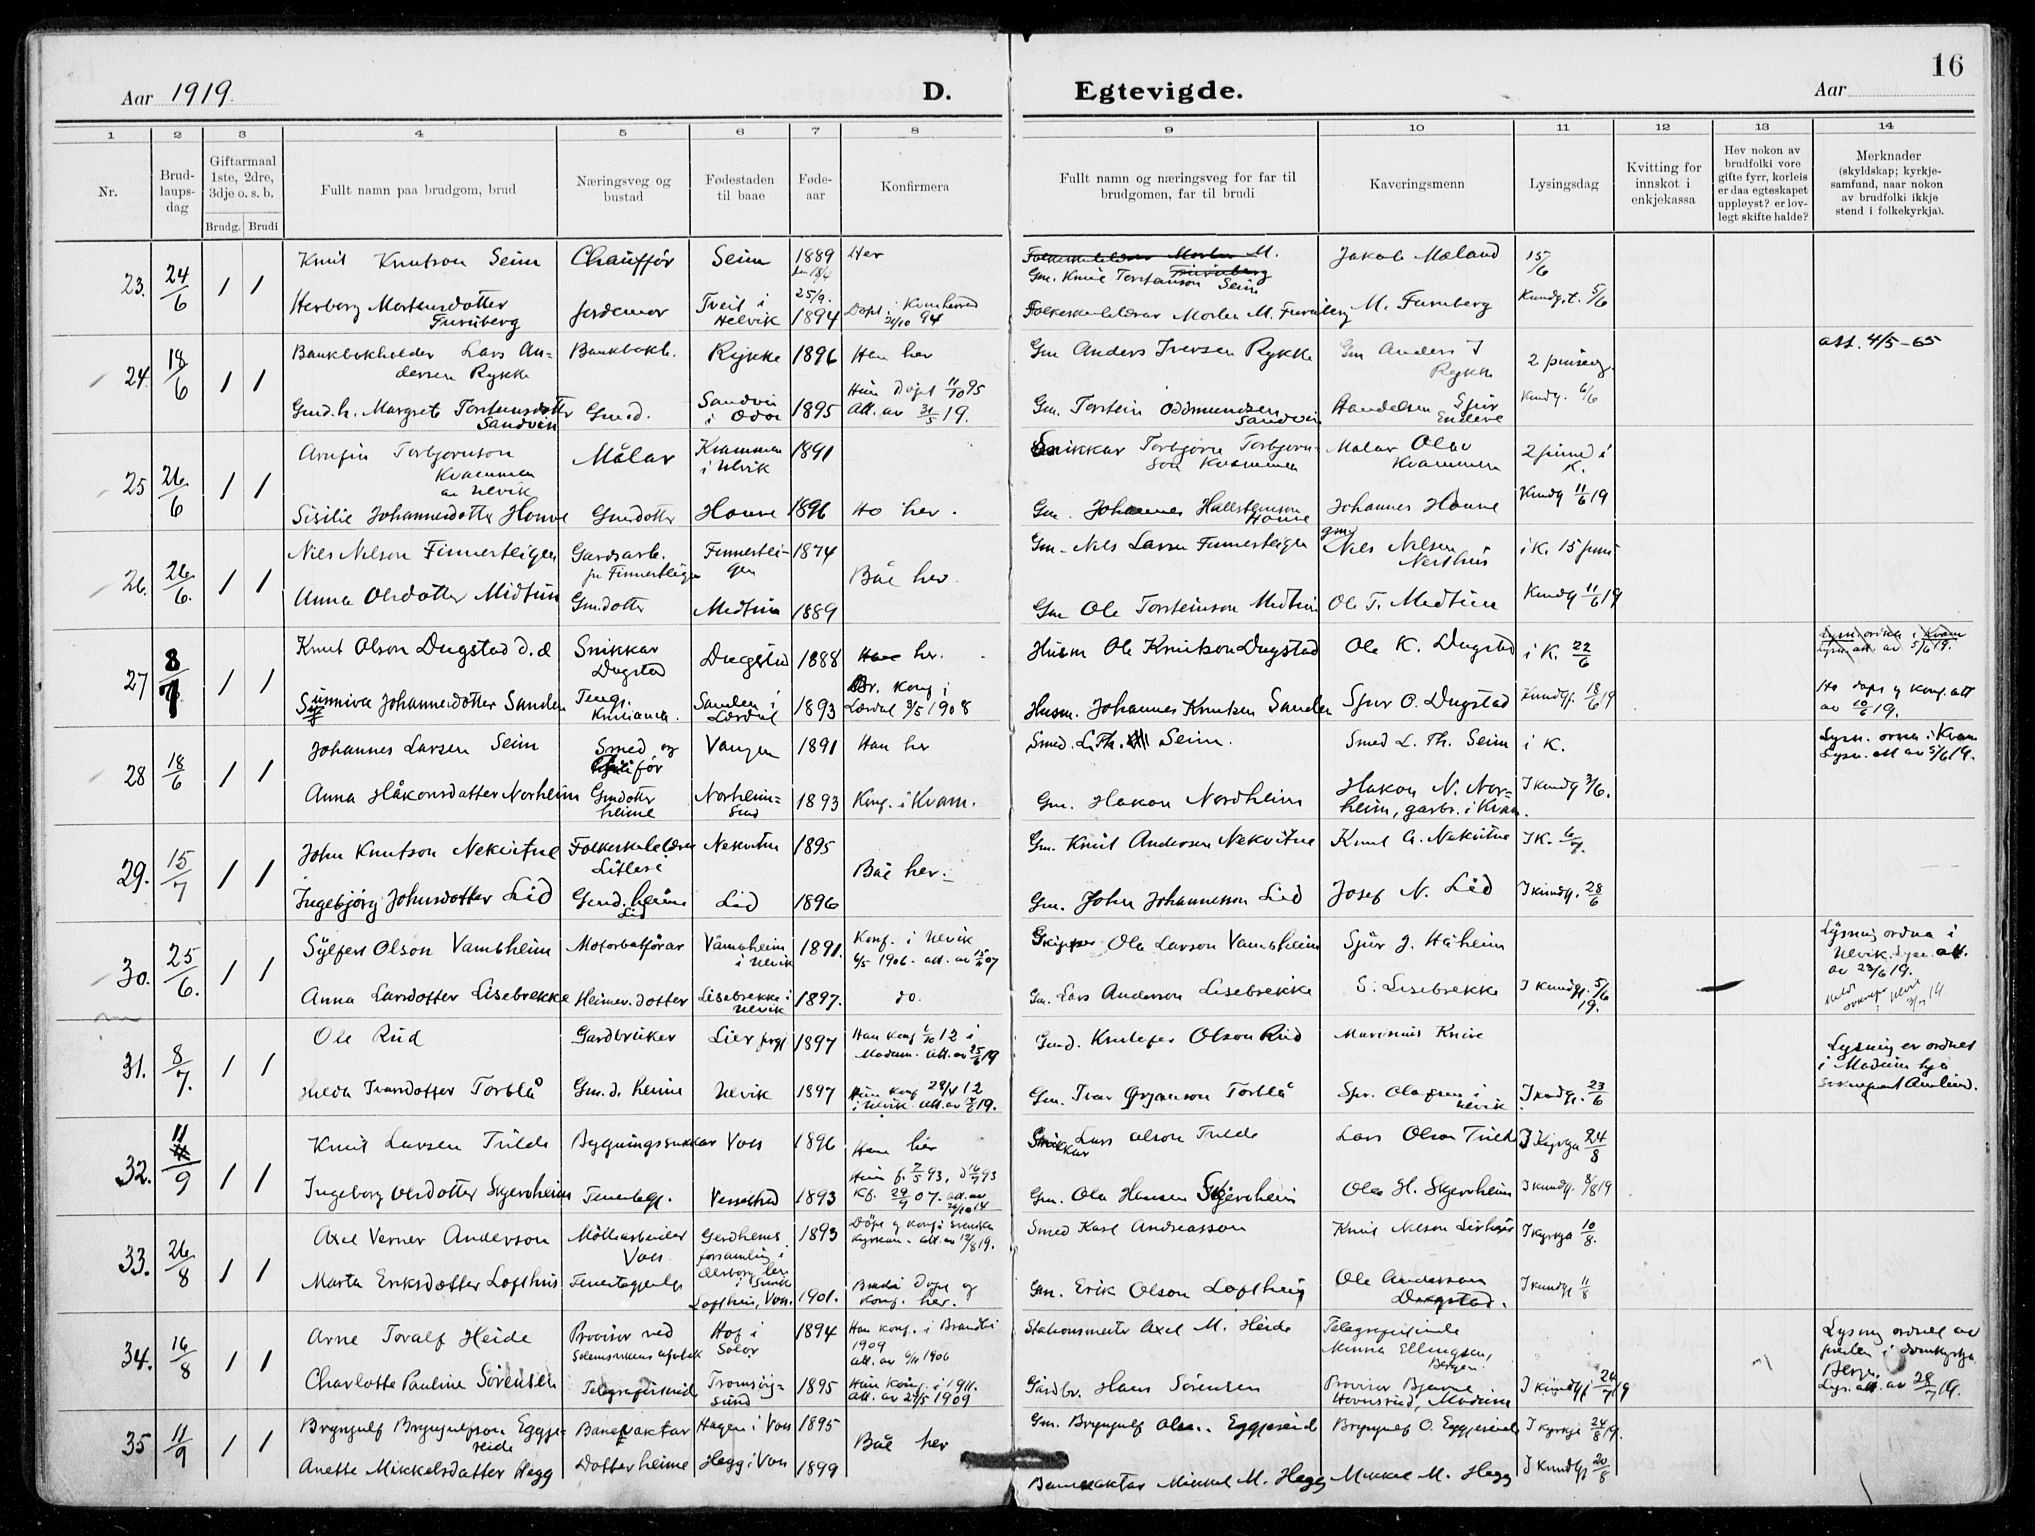 16
Aar 1919.
D.
Egtevigde.
Aar
1 2 3 4 5 6 7 8 9 10 11 12 13 14
Nr.
Brud-
laups-
dag
Giftarmaal
1ste, 2dre,
3dje o. s. b.
Brudg. Brudi
Fullt namn paa brudgom, brud
Næringsveg og
bustad
Fødestaden
til baae
Føde-
aar
Konfirmera
Fullt namn og næringsveg for far til
brudgomen, far til brudi
Kaveringsmenn
Lysingsdag
Kvitting for
innskot i
enkjekassa
Hev nokon av
brudfolki vore
gifte fyrr, korleis
er daa egteskapet
uppløyst? er lov-
legt skifte halde?
Merknader
(skyldskap; kyrkje-
samfund, naar nokon
av brudfolki ikkje
stend i folkekyrkja).
23. 24/6 1 1
Knut Knutson Seim Chauffør Seim 1889 Her
Gm. Knut Torstenson Seim Jakob Mæland 15/6
Herborg Mortensdatter
Furuberg
Jordmor Treit i
Helvik 25/9. 1894 Døpt i Kvinherred
21/10 94
Folkeskulelærar Morten M. Furuberg M. Furuberg Kundgt. 5/6
24 18/6 1 1
Bankbokholder Lars An-
dersen Rykke
Bankbokh. Rykke 1896 Han her
Gm Anders Iversen Rykke Gm Anders I
Rykke
att. 4/5-65
Gmd.h. Margreta Torsteinsdotter
Sandvin
Gmd. Sandvin
i Odda 1895 Hun Døpt 11/10 95
Att. av 31/5 19.
Gm. Torstein Oddmundsen
Sandvin
Kundg. 6/6
25 26/6 1 1
Arnfin Torbjørnson
Kvammen
av Ulvik
Målar Kvammen
i Ulvik 1891
Snikkar Torbjørn Torbjørn-
son Kvammen
Malar Olav
Kvammen
Sisilie Johannesdotter Honve Gmdotter Honve 1896 Ho her.
Gm. Johannes Hallsteinson
Honve
Johannes Honve Kundg 11/6 19
26. 26/6. 1 1
Nils Nilson Finnesteigen Gardsarb.
pr Finnesteigen
Finnestei-
gen 1874
Gm. Nils Larsen Finnesteigen gmd
Nils Nilsen i K. 15 juni
Baae her.
Anna Olsdotter Midtun Gmdotter Midtun 1889
Gm Ole Torsteinson Midtun Ole T. Midtun Kundg 11/6 19
27 8/7 1 1
Knut Olson Dugstad d.æ Snikkar
Dugstad
Dugstad 1888 her.
Husm Ole Knutson Dugstad Ole K. Dugstad i K. 22/6
Sunniva Johannesdotter Sanden Teng.
Kristiania.
Sanden i
Lærdal 1893 Br. konf i
Lærdal 3/5 1908
Husm. Johannes Knutsen Sanden Sjur O. Dugstad Kundgj. 18/6 19
Ho døpt og konf. att
av 10/6 19.
28 18/6 1 1
Johannes Larsen Seim Smed og
Vangen 1891 Han her
Smed. L. Th. Seim. Smed L. Th. Seim i K.
Lysn. ordna i Kvam
Lysn. att av 5/6 19.
Anna Håkonsdatter Norheim Gmdotter
heime
Norheim-
sund 1893 Konf. i Kvam.
Gm. Hakon Nordheim Hakon N. Nor-
heim, garbr. i Kvam. I kundg 3/6.
29. 15/7 1 1
John Knutson Nekvitne Folkeskulelærar
Nekvitne 1895
Gm. Knut Andersen Nekvitne Knut A. Nekvitne I K. 6/7.
Baae her.
Ingebjørg Johnsdotter Lid Gmd. heime
Lid
Lid 1896
Gm. John Johannesson Lid Josef N. Lid I kundg. 28/6
30. 25/6. 1 1
Sylfest Olson Vambheim Motorbåtførar Vambheim
i Ulvik 1891. Konf. i Ulvik
6/5 1906. att. av
Skipper Ole Larson Vambheim Sjur J. Håheim
Lysning ordna i
Ulvik. Lysn. att.
av 23/6 19.
Anna Larsdotter Lisebrekke Heimev. dotter Lisebrekke i
Ulvik 1897. do.
Gm. Lars Anderson Lisebrekke S. Lisebrekke I kundgj. 5/6
19.
31. 8/7. 1 1
Ole Rud Gardbruker Lier prgj 1897 Han konf 1/10 12 i
Modum. att. av 25/6 19
Gmd. Kristofer Olson Rud Marinius Knive
Lysning er ordnet
i Modum hja
Helda Ivarsdotter Torblå Gm.d. heime Ulvik 1897 Hun konf 28/4 12
i Ulvik att. av 19.
Gm. Ivar Ørjanson Torblå Spr. Olafsen i
Ulvik I kundgj. 23/6
32. 11/9 1 1
Knut Larsen Tulde Bygningssnikkar Voss 1896 Han her
Snikkar Lars Olson Tulde Lars Olson Tulde I Kyrkja 24/8
Ingeborg Olsdotter Skjervheim Tenestegj. 1893 Hun f. 7/5 93, d 16/7 93
Kf. 29/9 07. att. av
26/10 14
Gm. Ola Hansen Skjervheim Olav H. Skjervheim I kundg. 8/8 19
33. 26/8 1 1
Axel Verner Anderson Møllearbeider
Voss
Gerdhems
forsamling i
1893 Døpt og konf. i svenske
kyrkan. att. av 12/8 19.
Smed Karl Andreasson Knut Nilson I kyrkja 10/8.
Marta Eriksdotter Lofthus Tenestegjente Lofthus, Voss. 1901. Brudi døpt og
konf. her.
Gm. Erik Olson Lofthus Ole Anderson
Dugstad. I kundgj 11/8
34. 16/8 1 1
Arne Toralf Heide Provisor ved
Hof i
Solør 1894 Han konf. i Brandbu
1909
att. av 6/11 1906
Stationsmester Axel M. Heide Telegrafistinde
Minna Ellingsen,
Bergen.
Charlotte Pauline Sørensen Telegrafistinde Tromsøy-
sund 1895 Hun konf. i 1911.
Att. av 29/5 1909
Gardbr. Hans Sørensen Provisor Bjarne
Hovnsrud, Modum I kundgj 24/7 19
35 11/9 1 1
Brynjulf Brynjulfson Eggje-
reide
Banevaktar Hagen i Voss 1895
Gm. Brynjulf Ols.. Eggjereid Brynjulf O. Eggjereid I kyrkje 24/8 19.
Baae her
Anette Mikkelsdatter Hegg Dotter heime Hegg i Voss 1899
Banevaktar Mikkel M. Hegg Mikkel M. Hegg I kundgj 20/8